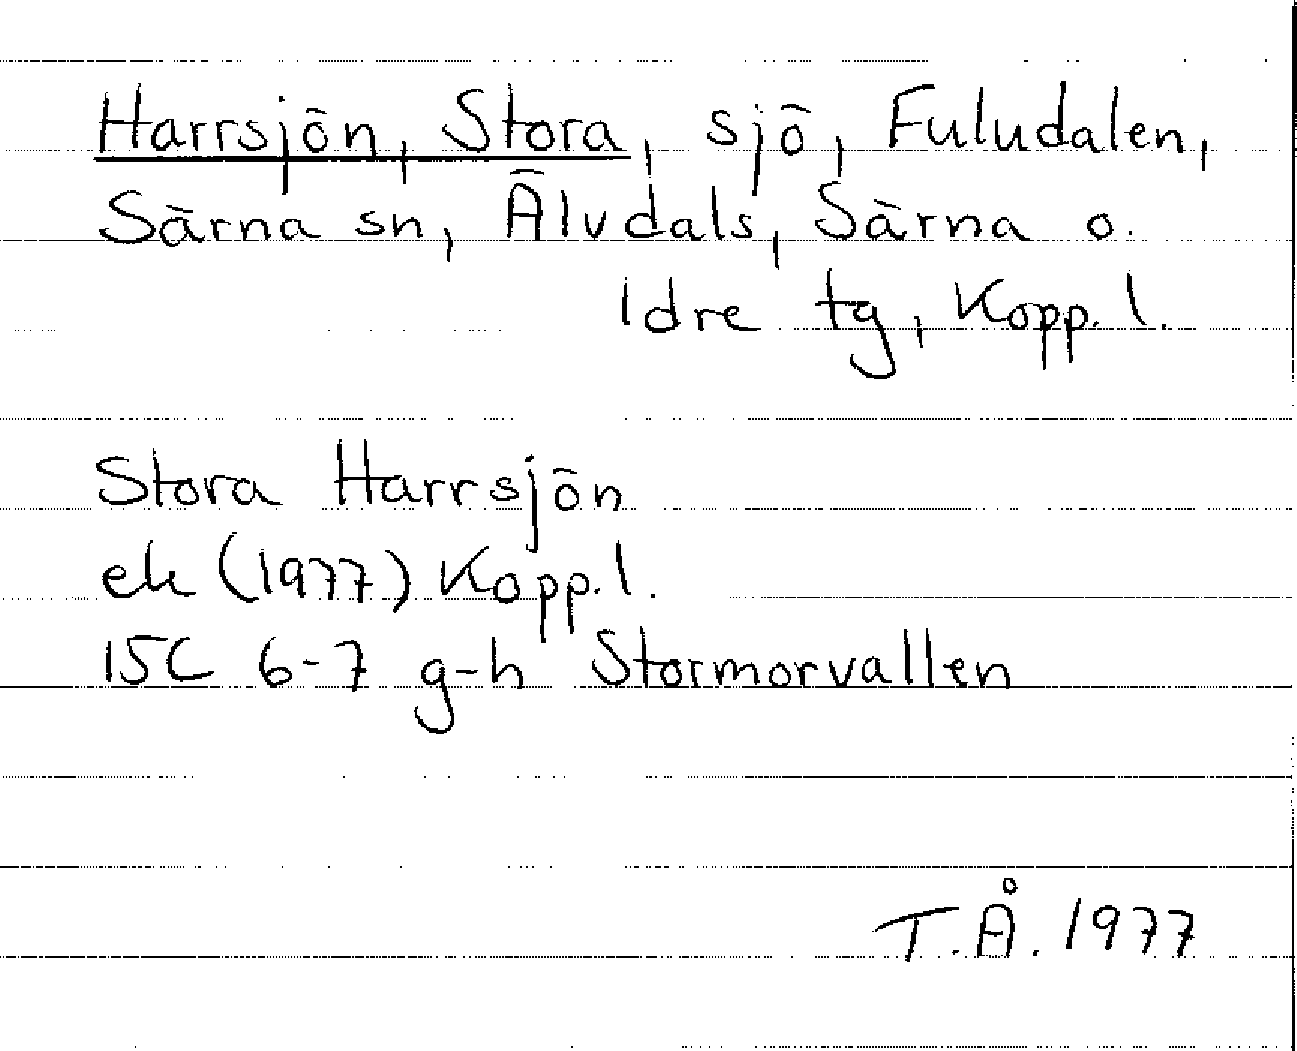 Harrsjön, Stora, sjö, Fuludalen,
Särna sn, Älvdals, Särna o.
Idre tg, Kopp. l.
Stora Harrsjön
ek (1977) Kopp. l.
15C 6-7 g-h Stormorvallen
T.Å. 1977